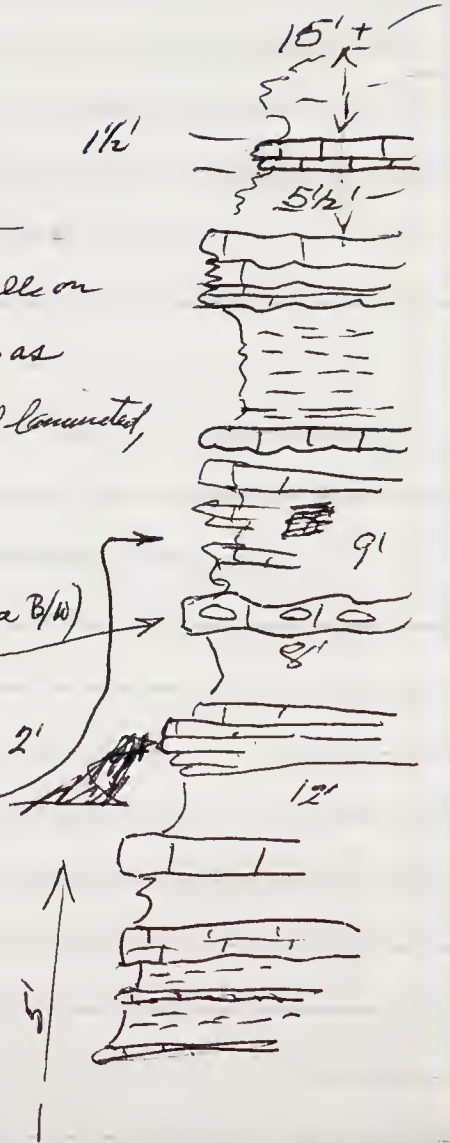 15' +
1½'
5½'
on
as
laminated,
9'
B/W)
8'
2'
12'
5'